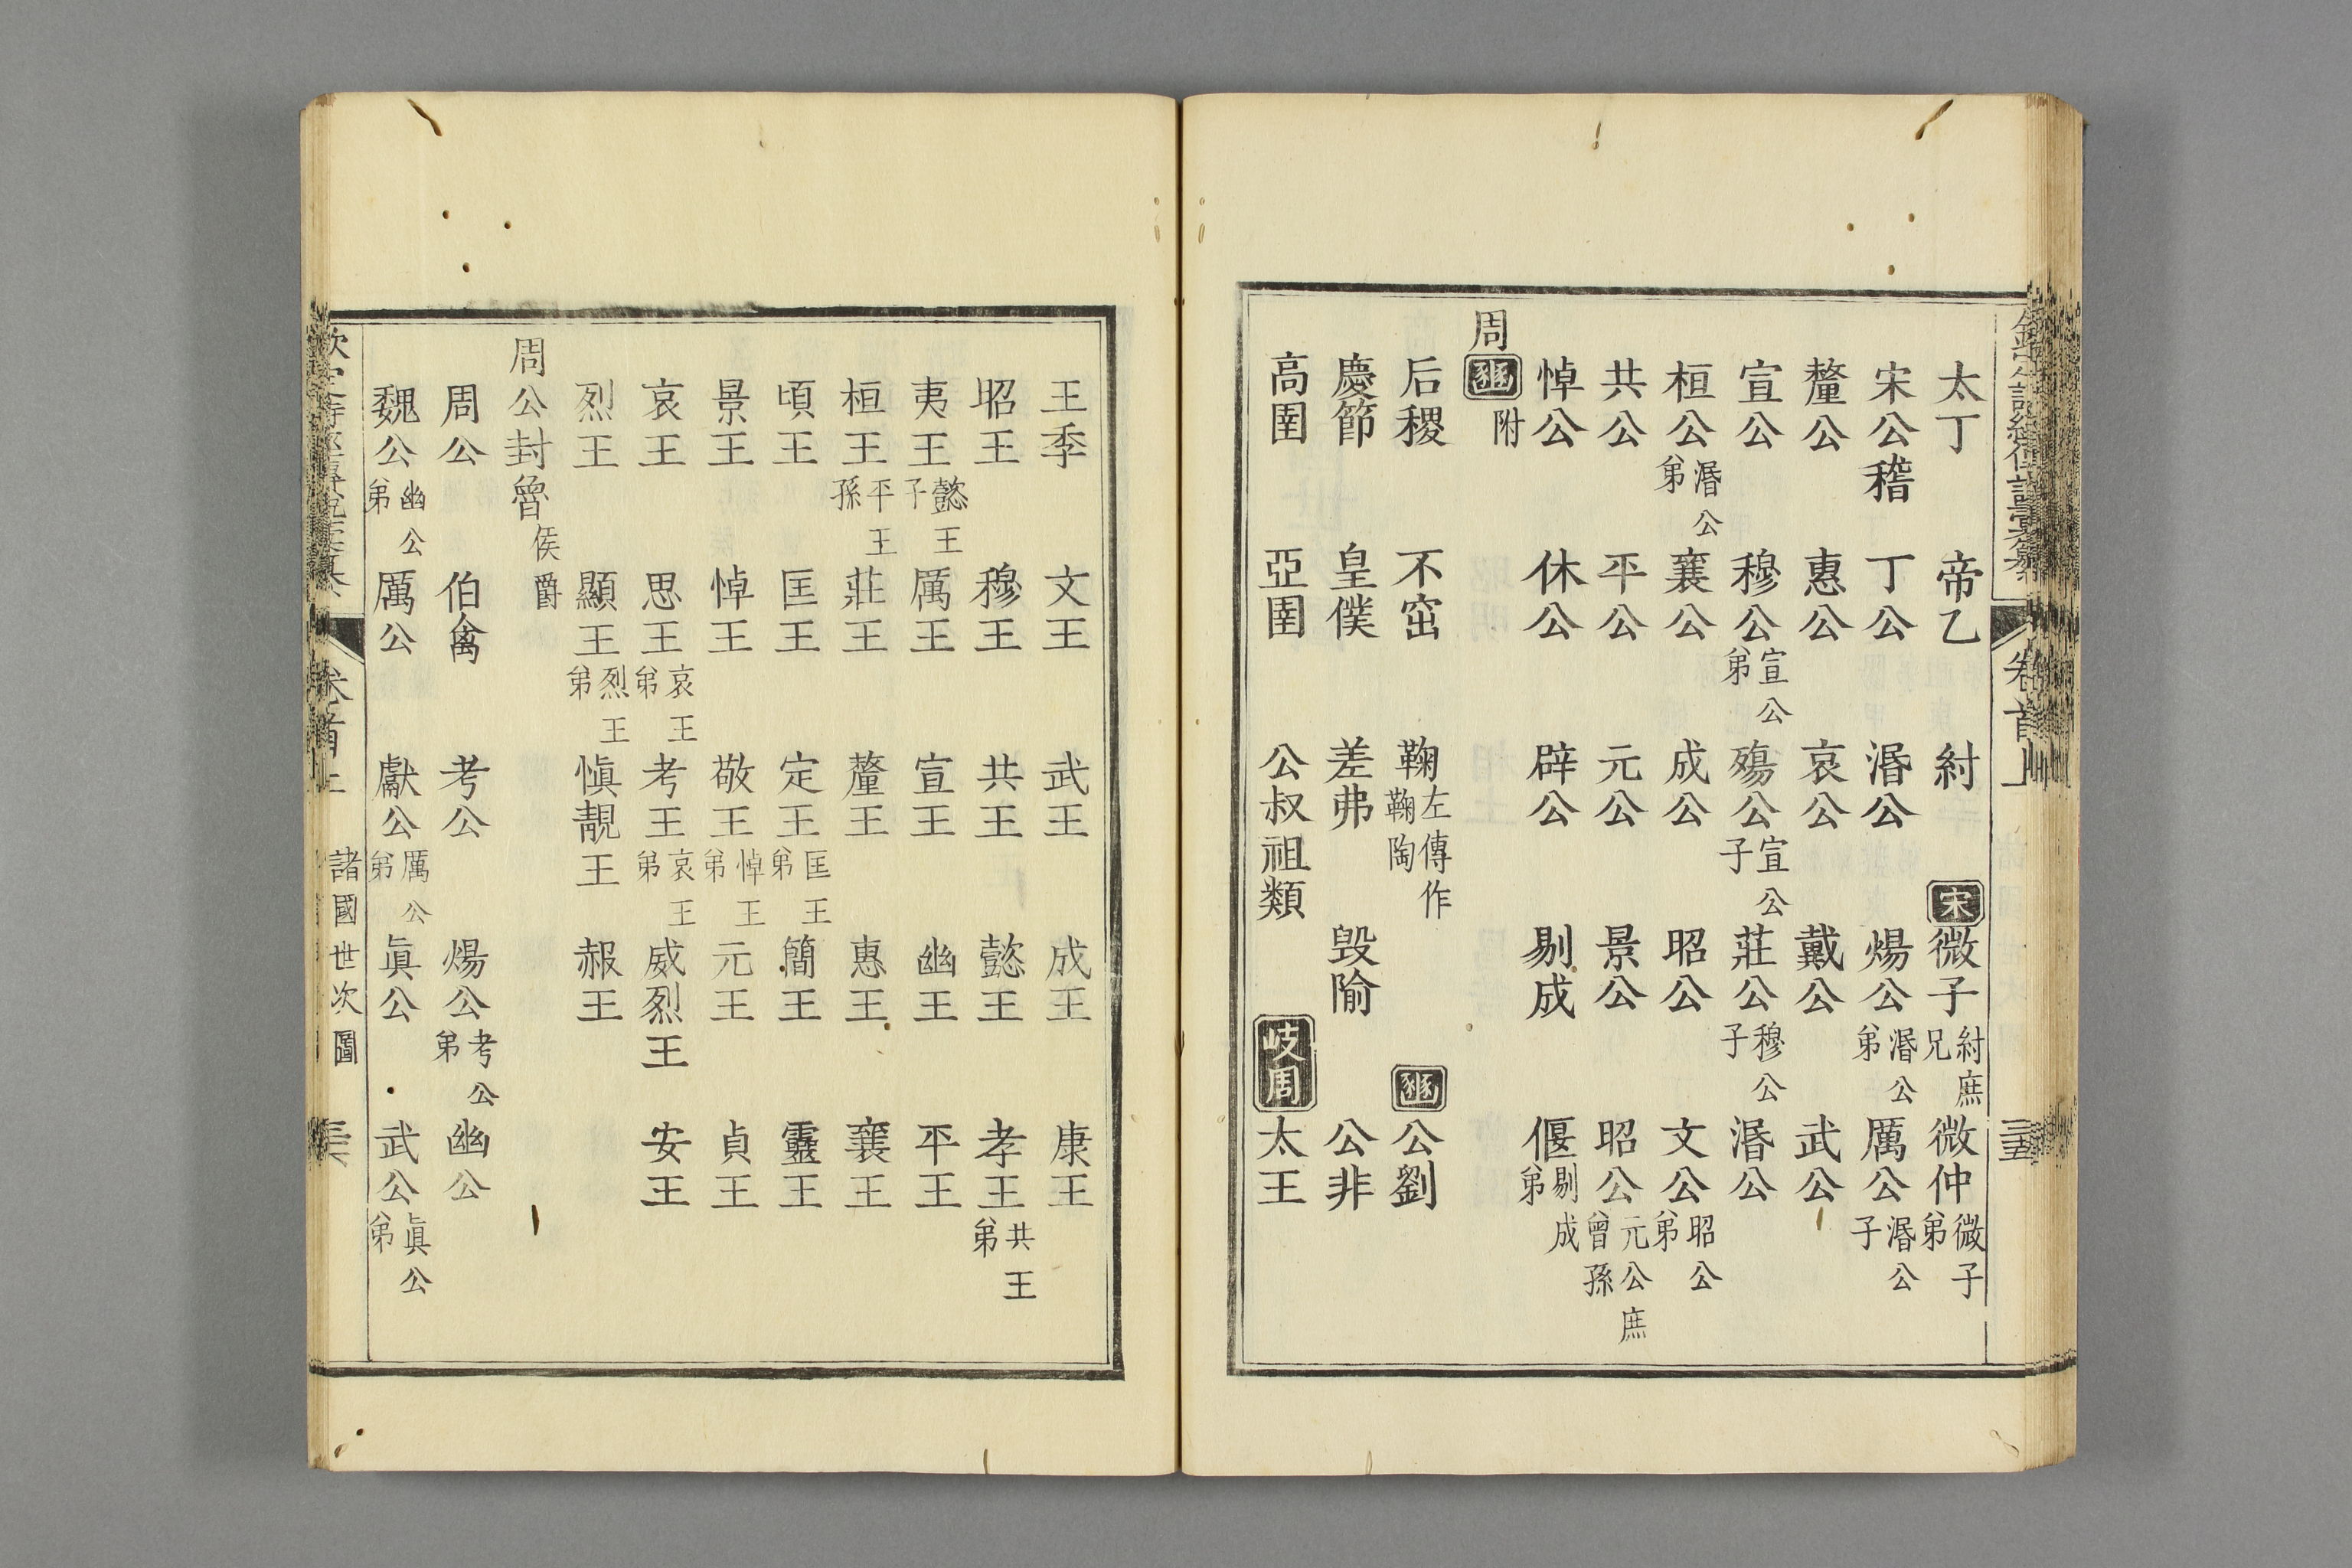 太丁 帝乙 紂 宋 微子紂庶兄 微仲微子弟
宋公稽 丁公 湣公 煬公湣公弟 厲公湣公子
釐公 惠公 哀公 戴公 武公
宣公 穆公宣公弟 殤公宣公子 莊公穆公子 湣公
桓公湣公弟 襄公 成公 昭公 文公昭公弟
共公 平公 元公 景公 昭公元公庶曾孫
悼公 休公 辟公 剔成 偃剔成弟
周 豳附
后稷 不窋 鞠左傳作鞠陶 豳 公劉
慶節 皇僕 差弗 毀隃 公非
高圉 亞圉 公叔祖類 岐周 太王
王季 文王 武王 成王 康王
昭王 穆王 共王 懿王 孝王共王弟
夷王懿王子 厲王 宣王 幽王 平王
桓王平王孫 莊王 釐王 惠王 襄王
頃王 匡王 定王匡王弟 簡王 靈王
景王 悼王 敬王悼王弟 元王 貞王
哀王 思王哀王弟 考王哀王弟 威烈王 安王
烈王 顯王烈王弟 慎靚王 赧王
周公封魯侯爵
周公 伯禽 考公 煬公考公弟 幽公
魏公幽公弟 厲公 獻公厲公弟 眞公 武公眞公弟
卷首上 諸國世次圖